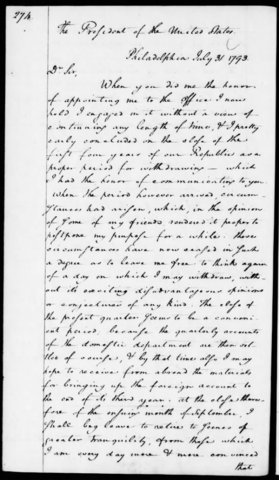 274
The President of the United States
Philadelphia July 31 1793.
Dr Sir,
When you did me the honor
of appointing me to the Office I now
hold I engaged in it without a view of
continuing any length of time, & I pretty
early concluded on the close of the
first four years of our Republic as a
proper period for withdrawing — which
I had the honor of communicating to you.
When the period however arrived circum-
stances had arisen, which, in the opinion
of some of my friends rendered it proper to
postpone my purpose for a while. those
circumstances have now ceased in such
a degree as to leave me free to think again
of a day on which I may withdraw, with-
out its exciting disadvantageous opinions
or conjectures of any kind. The close of
the present quarter seems to be a conveni-
ent period, because the quarterly accounts
of the domestic department are then set-
tled of course, & by that time also I may
hope to receive from abroad the materials
for bringing up the foreign account to
the end of its third year. at the close there-
fore of the ensuing month of September, I
shall beg leave to retire to scenes of
greater tranquility, from those which
I am every day more & more convinced
that